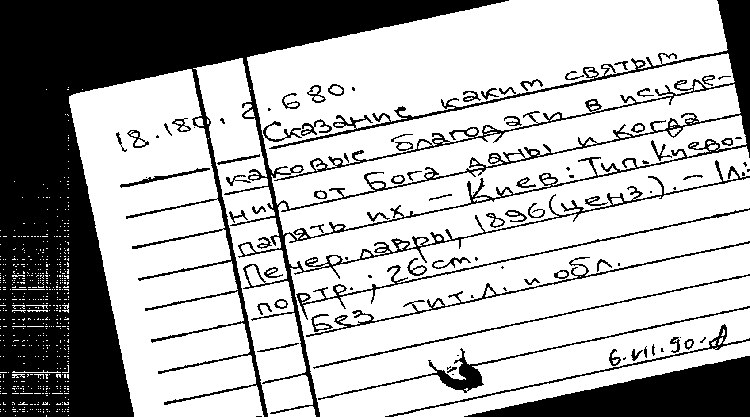 18.180.2.680.
Сказание каким святым
каковые благодати в исцеле-
нии от Бога даны и когда
память их. – Киев: Тип. Киево-
Печер. лавры, 1896 (ценз.). – 1 л.:
портр.; 26 cm.
Без тит. л. и обл.
6.VII.90.